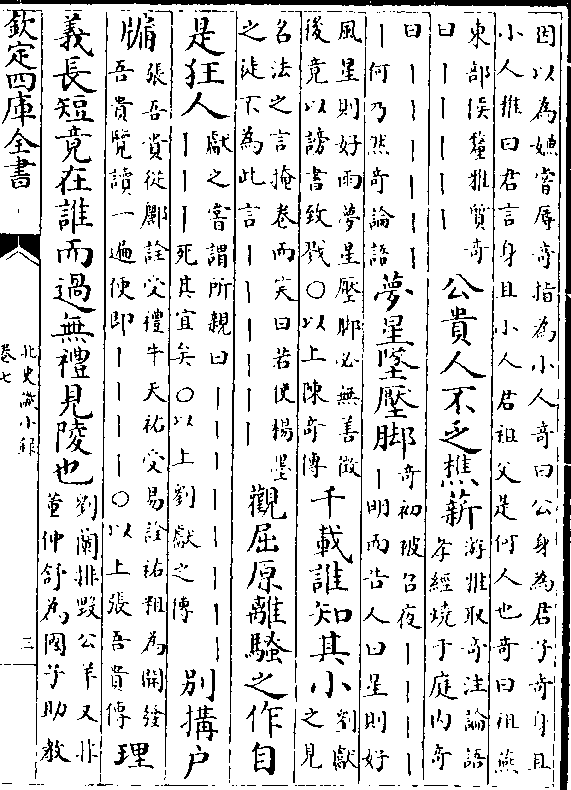 因以為嫌嘗辱奇指為小人奇曰公身為君子奇身且
小人雅曰君言身且小人君祖父是何人也奇曰祖燕
東部侯釐雅質奇
曰｜｜｜｜
公貴人不乏樵薪
游雅取奇注論語
孝經燒于庭内奇
曰｜｜｜｜｜｜｜
｜何乃然奇論語
夢星墜壓脚
奇初被召夜｜｜｜｜
｜明而告人曰星則好
風星則好雨夢星壓脚必無善徵
後竟以謗書致戮○以上陳奇傳
千載誰知其小
劉獻
之見
名法之言掩卷而笑曰若使楊墨
之徒不為此言｜｜｜｜｜｜
觀屈原離騷之作自
是狂人
獻之嘗謂所親曰｜｜｜｜｜｜｜｜
｜｜｜死其宜矣○以上劉獻之傳
別搆户
牖
張吾貴從酈詮受禮牛天祐受易詮祐粗為開發
吾貴覽讀一遍便即｜｜｜｜○以上張吾貴傳
理
義長短竟在誰而過無禮見陵也
劉蘭排毀公羊又非
董仲舒為國子助教
欽定四庫全書
北史識小錄
卷七
三